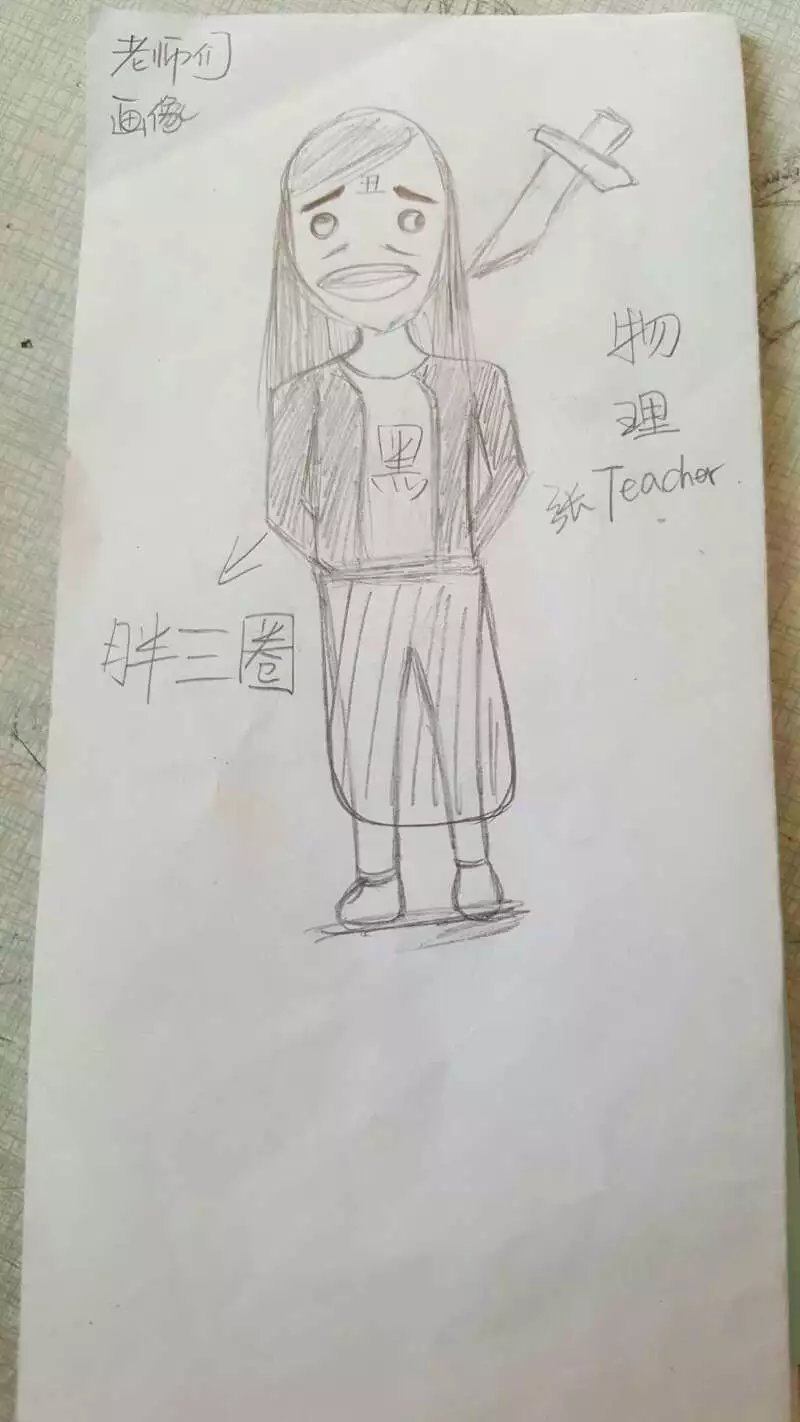 老师们
画像
丑
物
理
张Teacher
黑
胖三圈